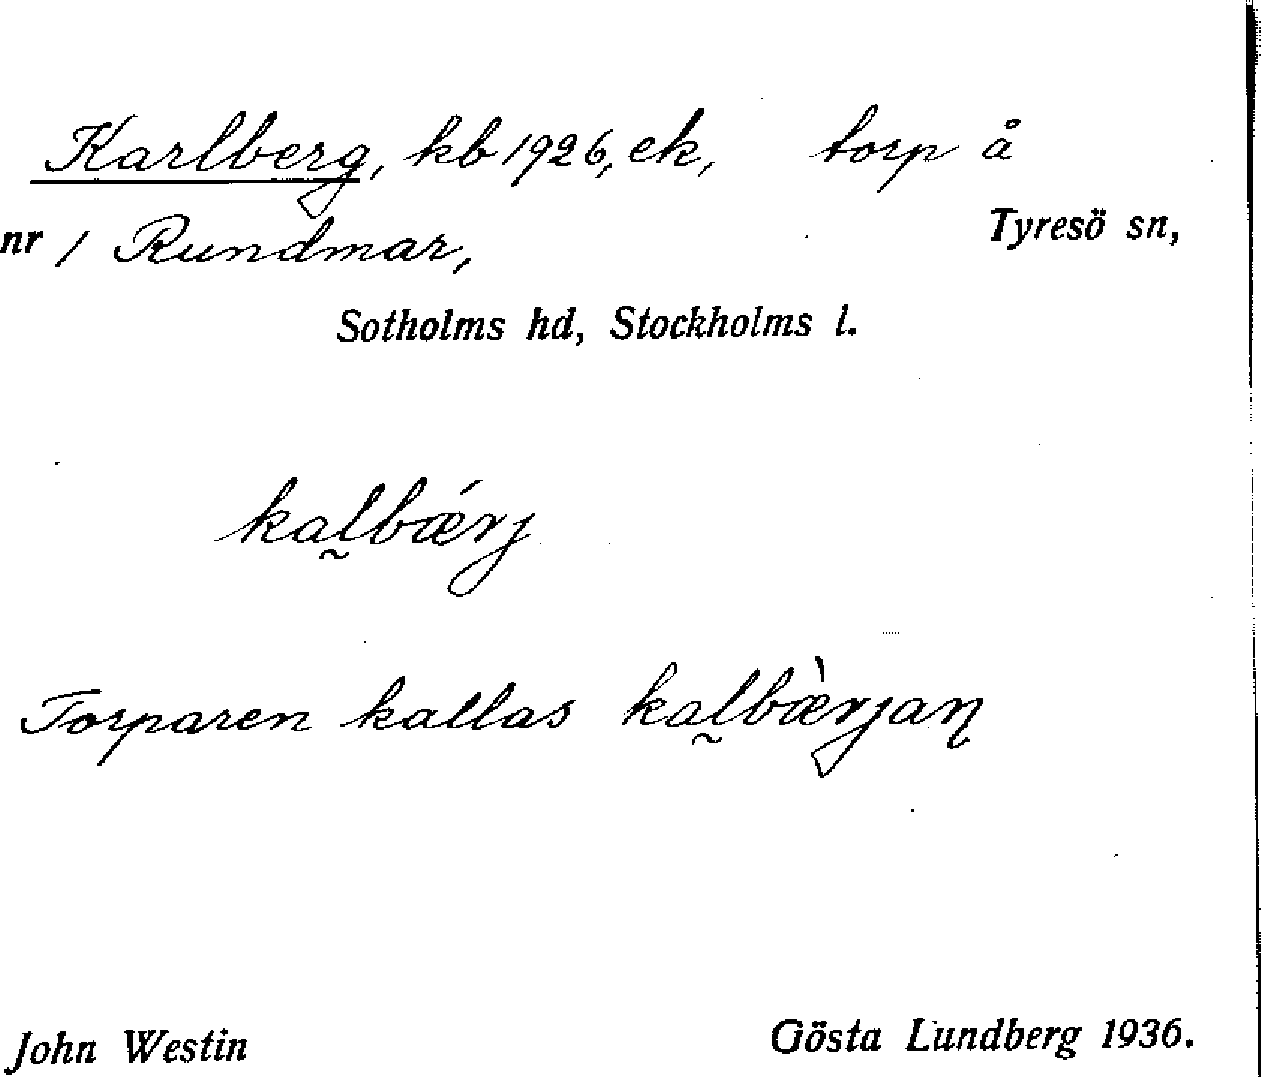 Karlberg, kb 1926, ek, torp å
nr 1 Rundmar, Tyresö sn,
Sotholms hd, Stockholms l.
ka̰lbǽrj
Torparen kallas kal̰bæ̀rjaɳ
John Westin Gösta Lundberg 1936.